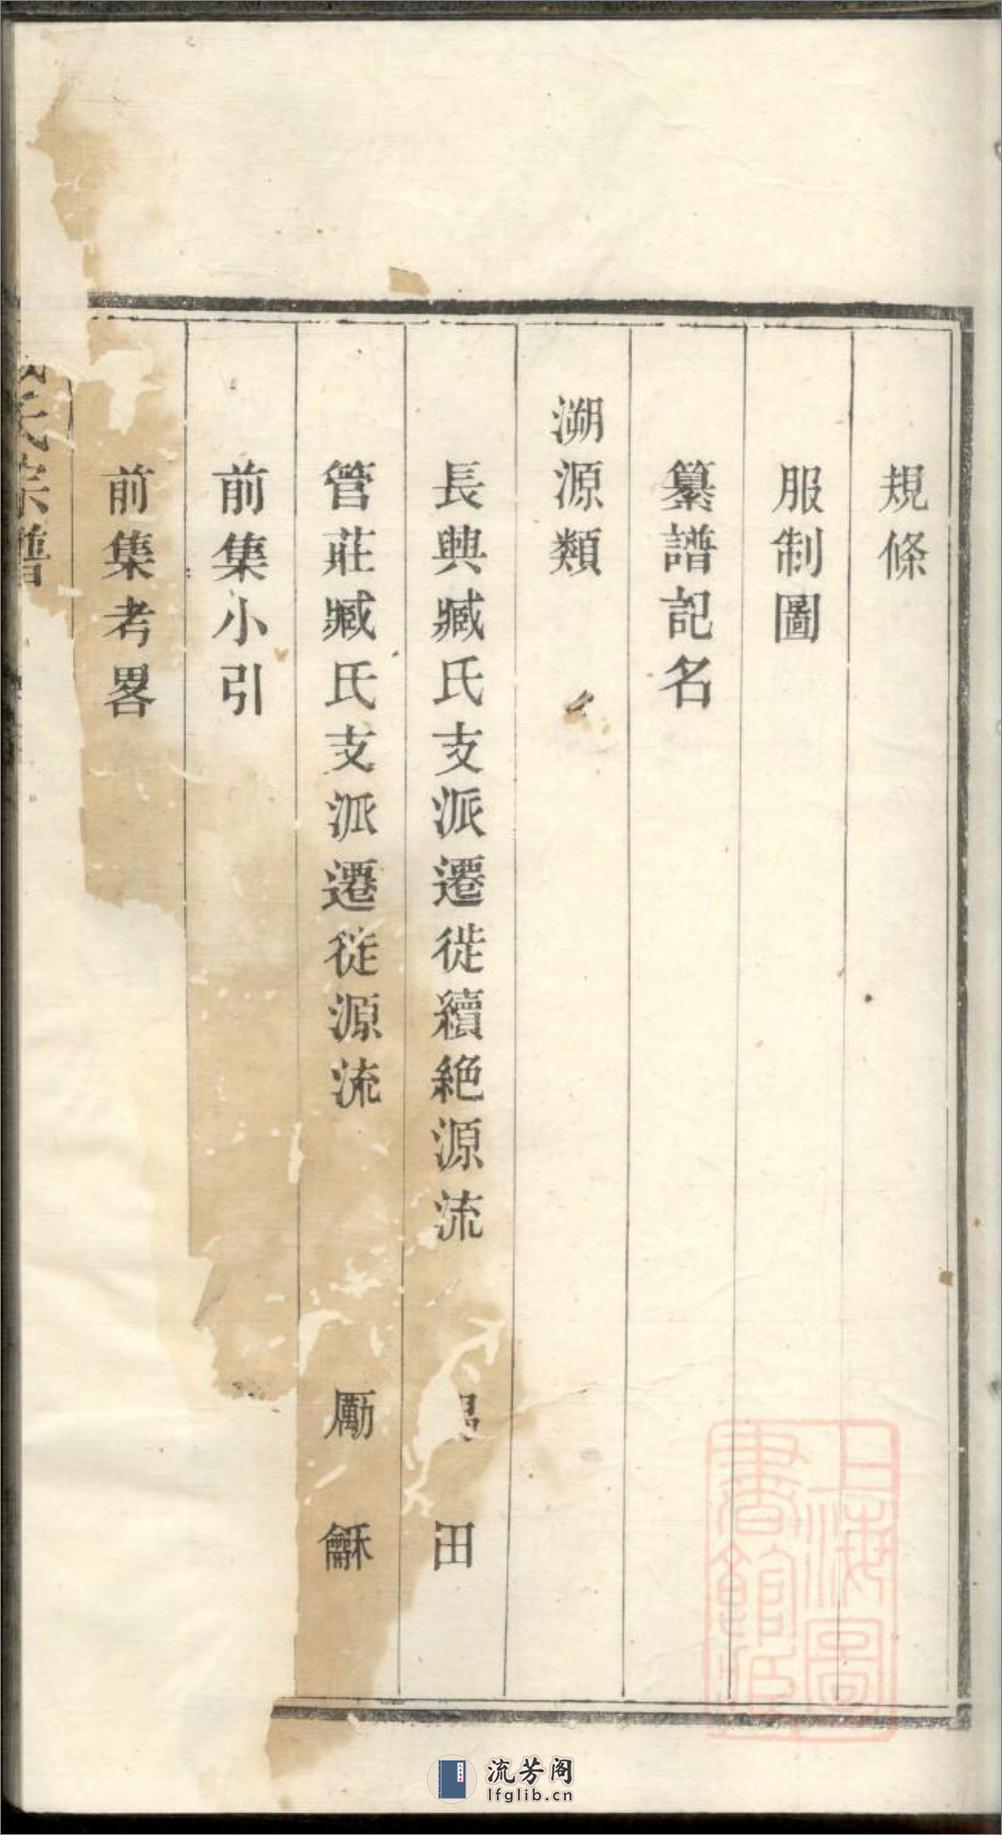 規條
服制圖
纂譜記名
溯源類
長興臧氏支派遷徙續絕源流 田
管莊臧氏支派遷徙源流 勵 龢
前集小引
前集考畧
氏宗譜
上海圖書館藏
流芳阁
lfglib.cn